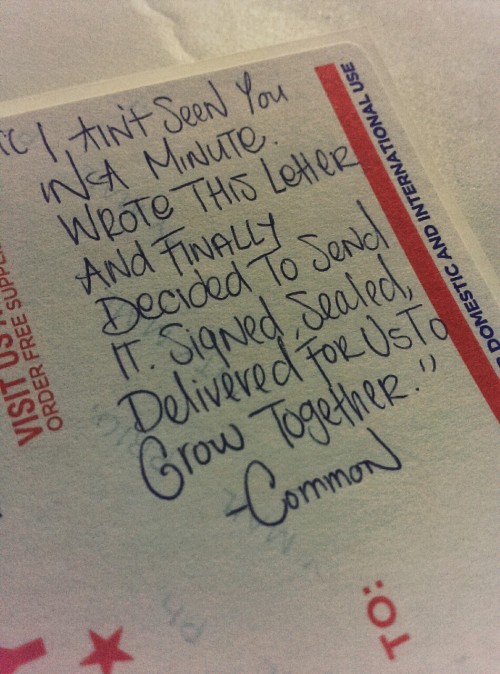 I AIN't SeeN You
IN A MINUTe.
WROTe THIS LetteR
ANd FINALLY
Decided To SeNd
IT. SigNed, Sealed,
DeliveRed FOR Us To
GRow TogetheR."
-CommoN
VISIT US
ORDER FREE SUPPL
DOMESTIC AND INTERNATIONAL USE
TO: